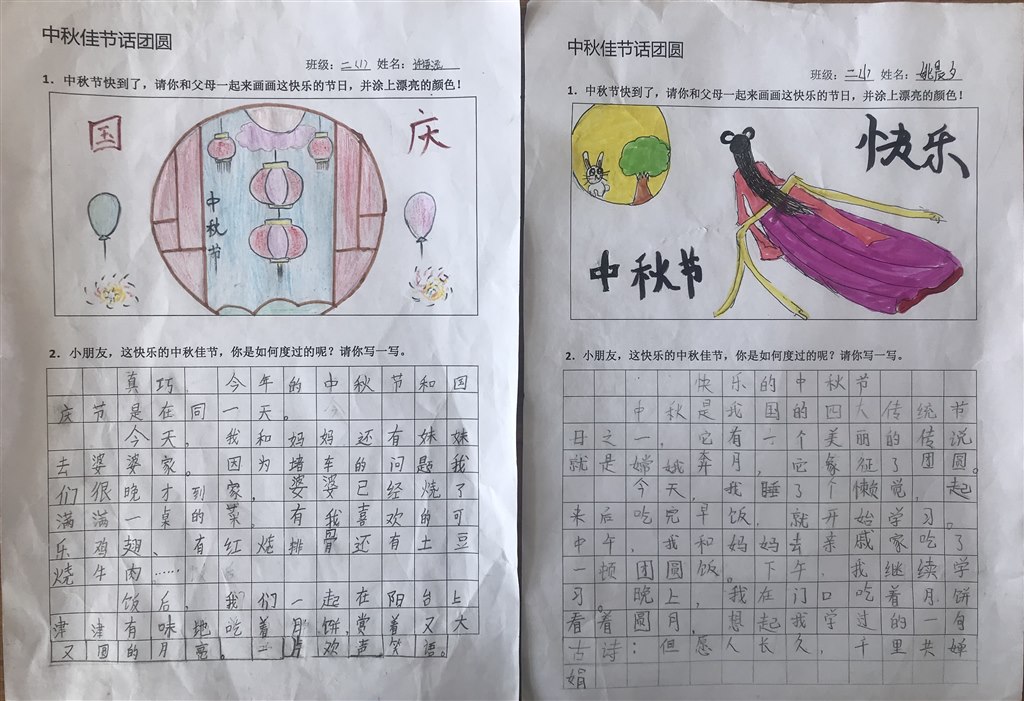 中秋佳节话团圆
班级：二（1） 姓名：
1．中秋节快到了，请你和父母一起来画画这快乐的节日，并涂上漂亮的颜色！
国
庆
中秋节
2．小朋友，这快乐的中秋佳节，你是如何度过的呢？请你写一写。
真巧今年的中秋节和国
庆节是在同一天。
今天，我和妈妈还有妹妹
去婆婆家。因为堵车的问题我
们很晚才到家，婆婆已经烧了
满满一桌的菜。有我喜欢的可
乐鸡翅、有红烧排骨还有土豆
烧牛肉……
饭后，我们一起在阳台上
津津有味地吃着月饼，赏着又大
又圆的月亮。一片欢声笑语。
中秋佳节话团圆
班级： 姓名：姚晨夕
1．中秋节快到了，请你和父母一起来画画这快乐的节日，并涂上漂亮的颜色！
快乐
中秋节
2．小朋友，这快乐的中秋佳节，你是如何度过的呢？请你写一写。
快乐的中秋节
中秋是我国的四大传统节
日之一，它有一个美丽的传说
就是嫦娥奔月，它象征了团圆。
今天，我睡了个懒觉，起
来后吃完早饭，就开始学习。
中午，我和妈妈去亲戚家吃了
一顿团圆饭。下午，我继续学
习。晚上，我在门口吃着月饼
看着圆月，想起我学过的一句
古诗：但愿人长久，千里共婵
娟